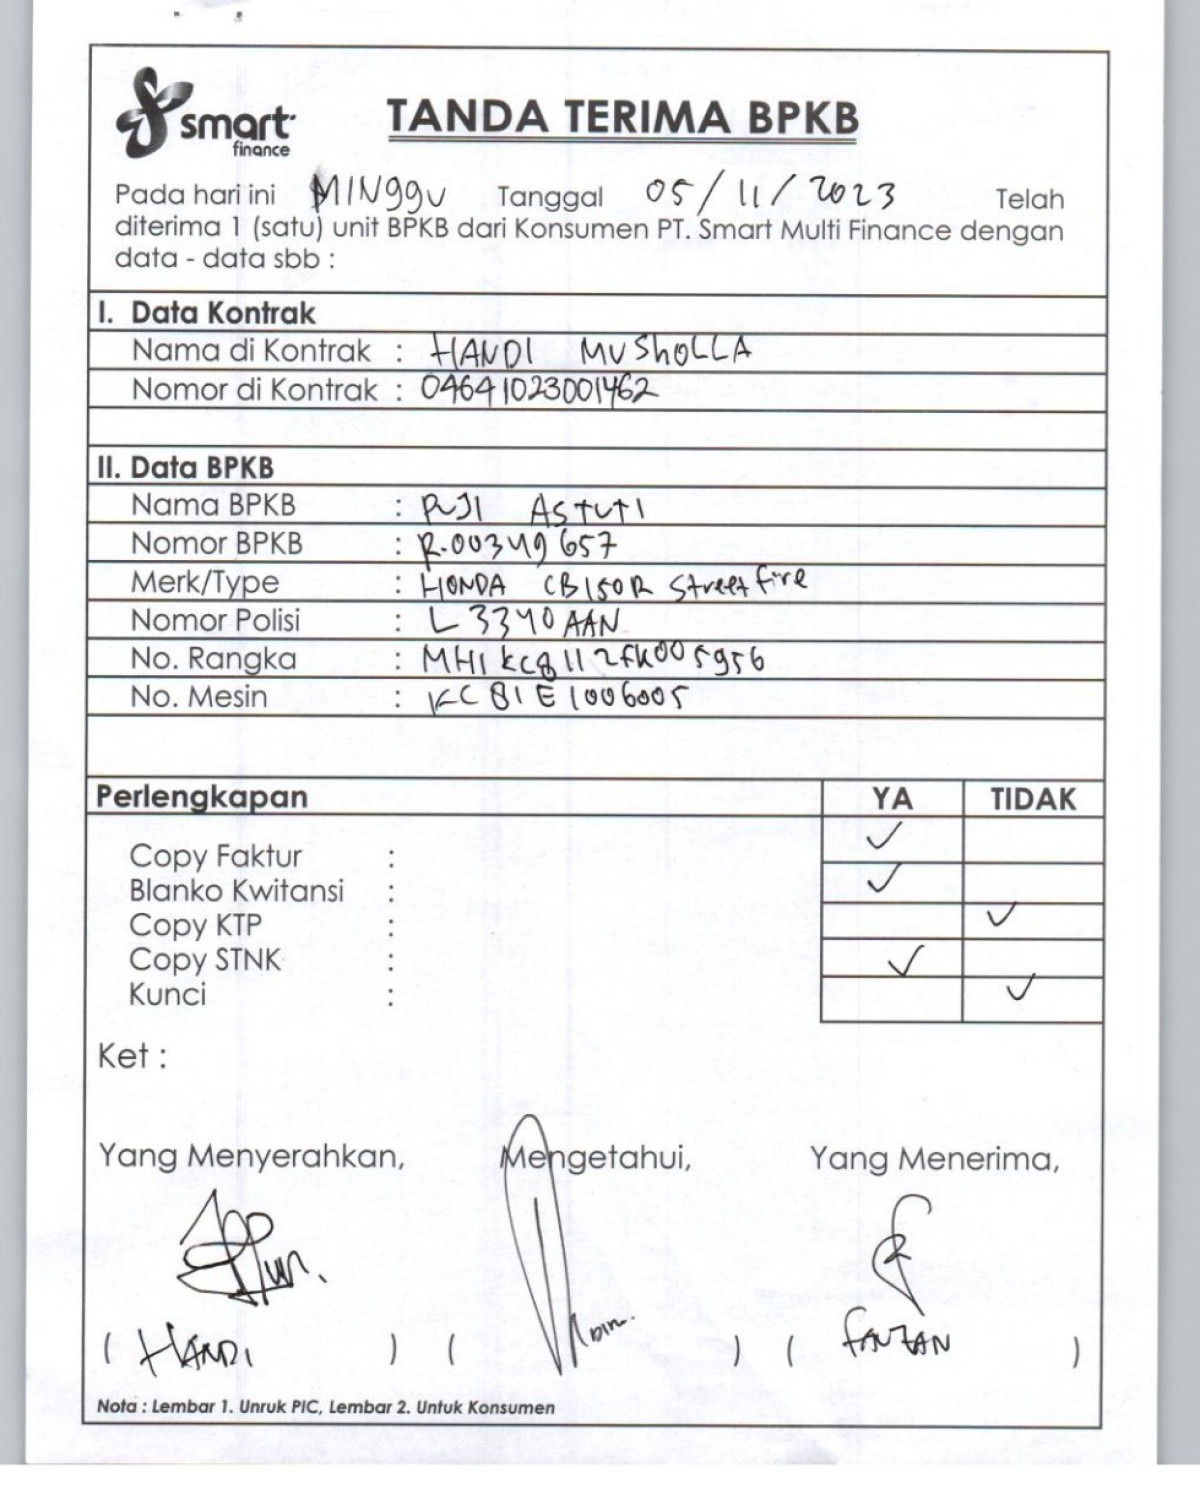 smart
finance
TANDA TERIMA BPKB
Pada hari ini MINggU Tanggal 05/11/2023 Telah
diterima 1 (satu) unit BPKB dari Konsumen PT. Smart Multi Finance dengan
data - data sbb :
I. Data Kontrak
Nama di Kontrak : HANDI MUShOLLA
Nomor di Kontrak : 04641023001462
II. Data BPKB
Nama BPKB : PUJI ASTUTI
Nomor BPKB : R.00349657
Merk/Type : HONDA CB150R Streetfire
Nomor Polisi : L 3340 AAN
No. Rangka : MH1KC8112FK005956
No. Mesin : KC81E1006005
Perlengkapan YA TIDAK
Copy Faktur : ✓
Blanko Kwitansi : ✓
Copy KTP : ✓
Copy STNK : ✓
Kunci : ✓
Ket :
Yang Menyerahkan, Mengetahui, Yang Menerima,
( HANDI ) ( ) ( )
Nota : Lembar 1. Unruk PIC, Lembar 2. Untuk Konsumen